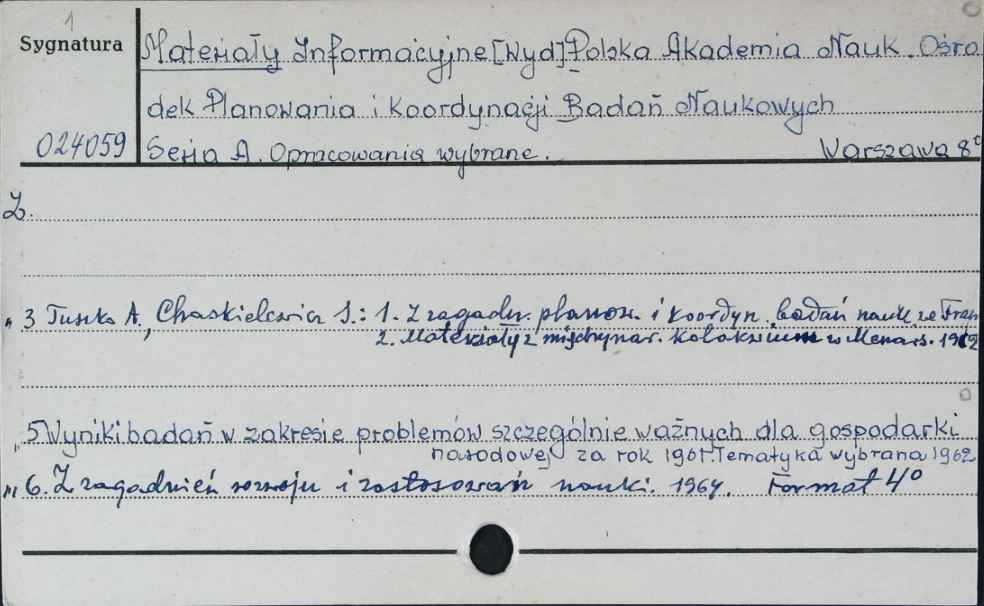 1
Sygnatura
Materiały Informacyjne [Wyd] Polska Akademia Nauk. Ośro
dek Planowania i Koordynacji Badań Naukowych
024059 Seria A. Opracowania wybrane. Warszawa 8°
Z.
„ 3 Tuszko A., Chaskielewicz S.: 1. Z zagadn. planow. i koordyn. badań nauk. we Fran
2. Materiały z międzynar. kolokwium w Menars. 1962
„ 5 Wyniki badań w zakresie problemów szczególnie ważnych dla gospodarki
narodowej za rok 1961. Tematyka wybrana 1962
„ 6. Z zagadnień rozwoju i zastosowań nauki. 1964. Format 4°